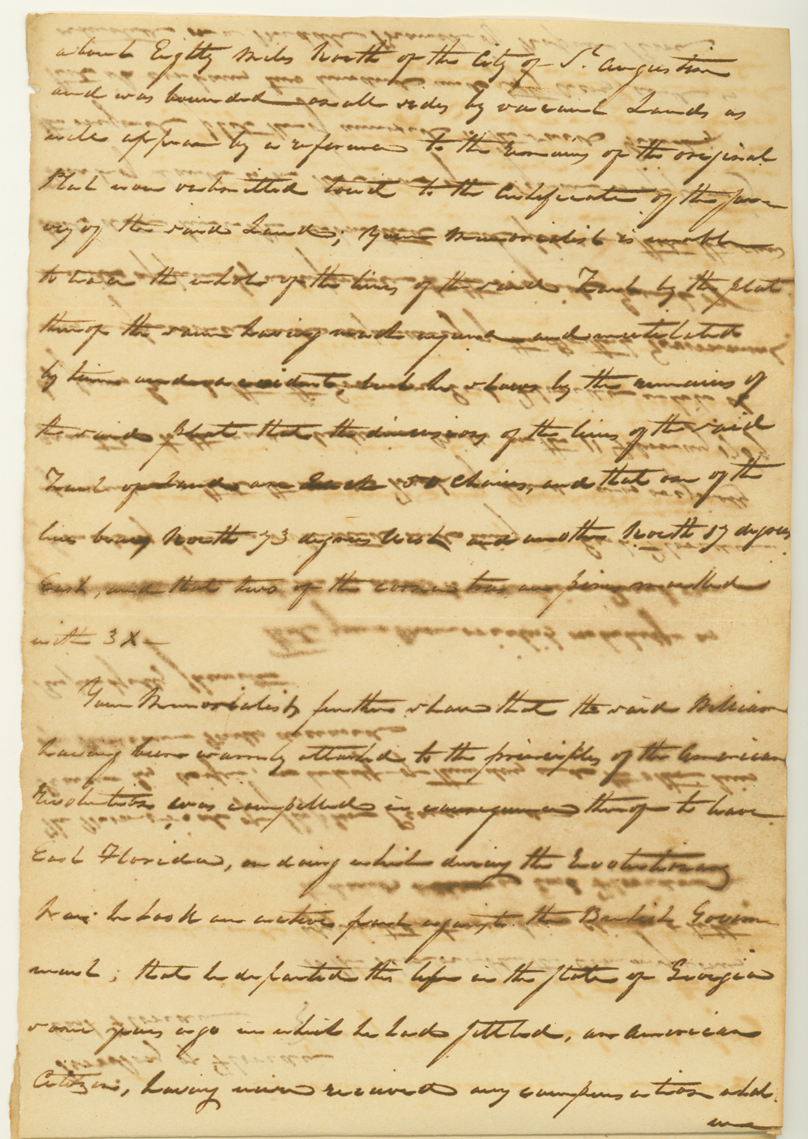 about Eighty Miles North of the City of St. Augustin
and was bounded on all sides by vacant Lands as
will appear by a reference to the remains of the original
Plat now submitted to the Certificate of the sur-
vey of the said Land; Your Memorialist is unable
to trace the whole of the lines of the said Tract by the plat
thereof the same having much injured and mutilated
by time and accident, but he shows by the remains of
the said plat that the dimensions of the lines of the said
Tract of Land are Each Chains, and that one of the
lines being North 73 degrees West and another North 17 degrees
East, and that two of the corner trees are pines marked
with 3 X -
Your Memorialist further shows that the said William
having been warmly attached to the principles of the American
Revolution was compelled in consequence thereof to leave
East Florida, on doing which during the Revolutionary
War he took an active part against the British Govern
ment; that he departed this life in the State of Georgia
some years ago in which he had settled, an American
Citizen, having never received any compensation what